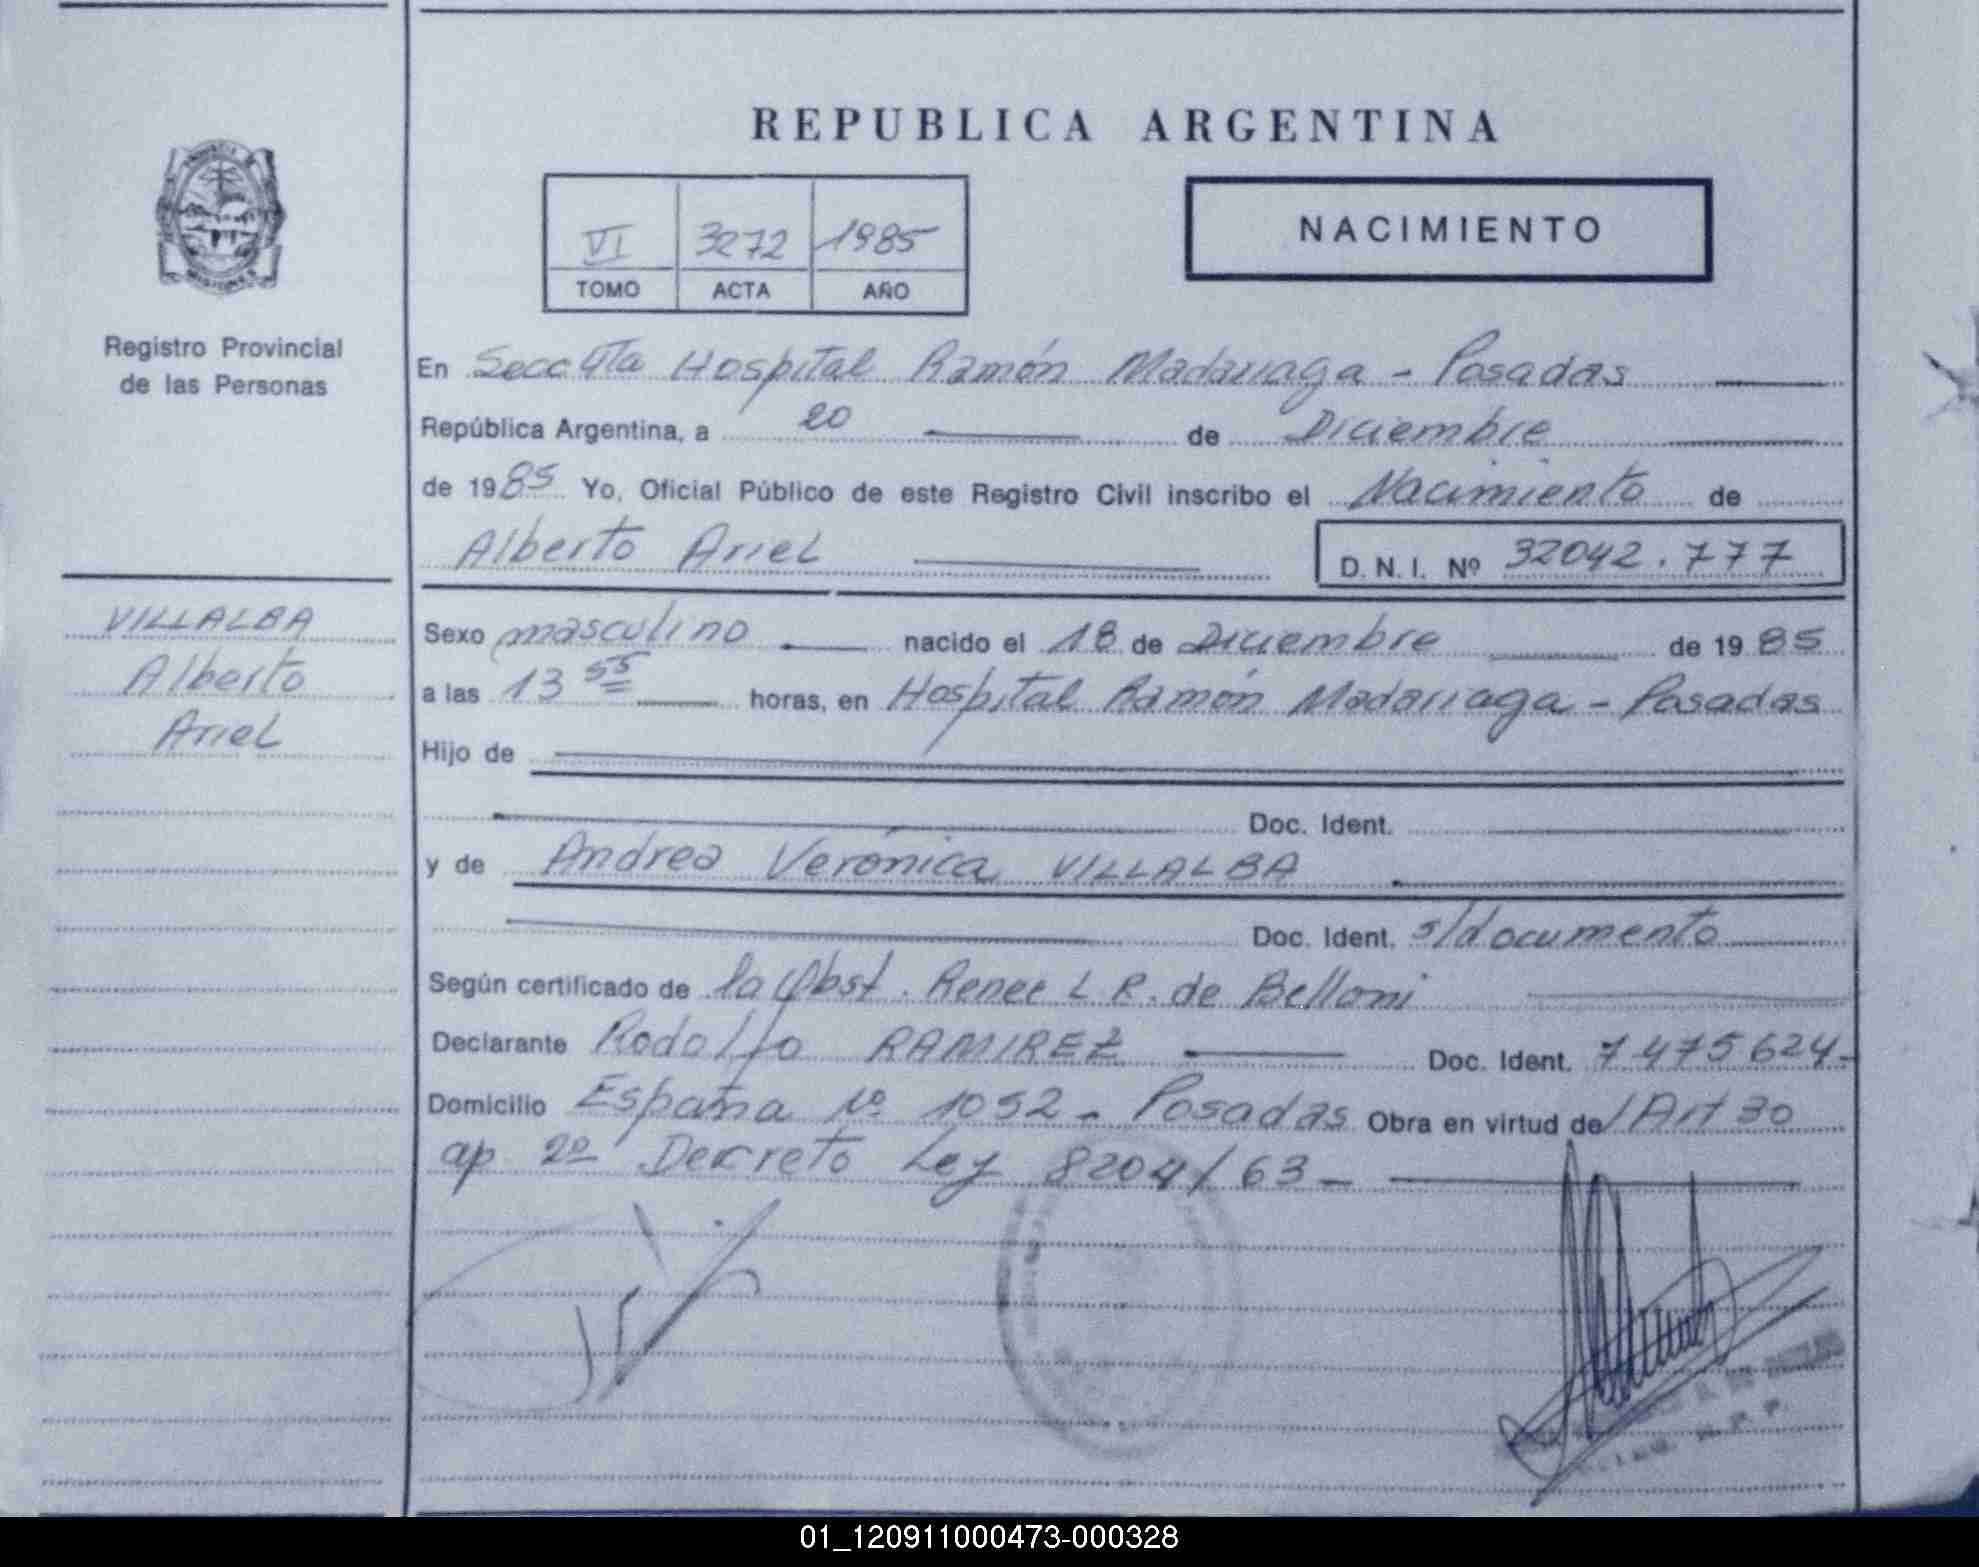 REPUBLICA ARGENTINA
VI 3272 1985
TOMO ACTA AÑO
NACIMIENTO
Registro Provincial
de las Personas
En Secc 4ta Hospital Ramón Madariaga - Posadas
República Argentina, a 20 de Diciembre
de 1985 Yo, Oficial Público de este Registro Civil inscribo el Nacimiento de
Alberto Ariel D.N.I. Nº 32042.777
VILLALBA
Alberto
Ariel
Sexo masculino nacido el 18 de Diciembre de 1985
a las 13 55 horas, en Hospital Ramón Madariaga - Posadas
Hijo de
Doc. Ident.
y de Andrea Verónica VILLALBA
Doc. Ident. s/documento
Según certificado de la Obst. Renee L R. de Belloni
Declarante Rodolfo RAMIREZ Doc. Ident. 7475624-
Domicilio España Nº 1052 - Posadas Obra en virtud de Art 30
ap 2º Decreto Ley 8204/63-
01_120911000473-000328